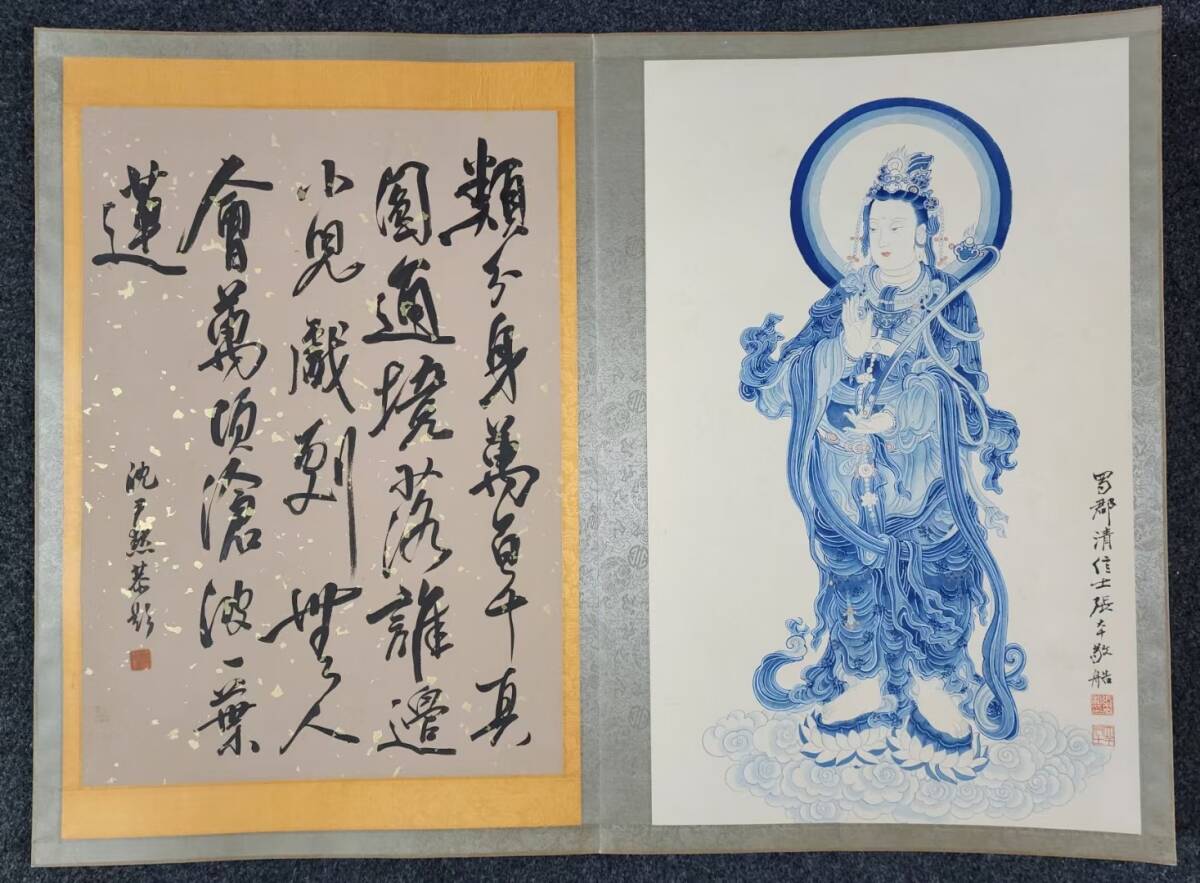 蜀郡清信士張大千敬艁
類分身萬百千真
圓通境落誰邊
小兒戲劇無人
會萬頃滄波一葉
蓮
沈尹默恭題